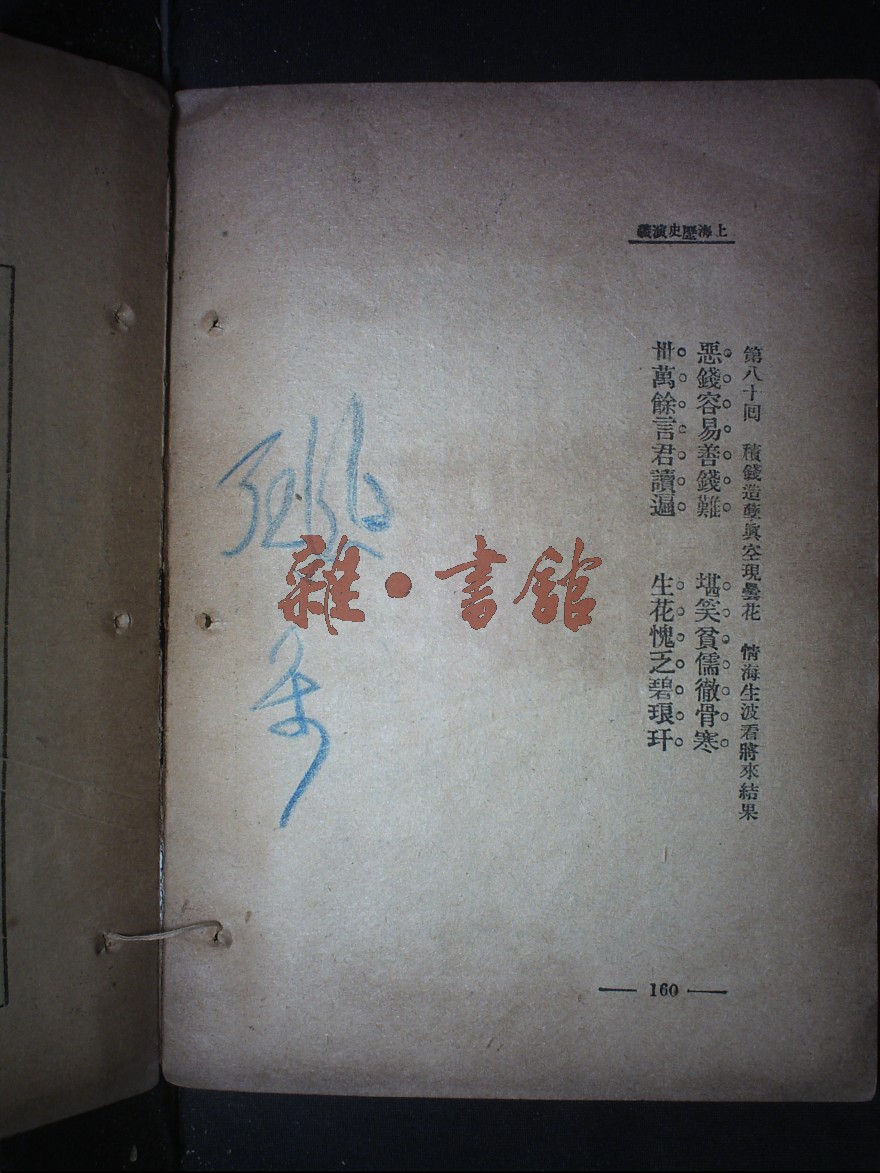 上海歷史演義
第八十回　積錢造孽眞空現曇花　情海生波看將來結果
惡錢容易善錢難　堪笑貧儒徹骨寒
卅萬餘言君讀遍　生花愧乏碧琅玕
雜·書館
160